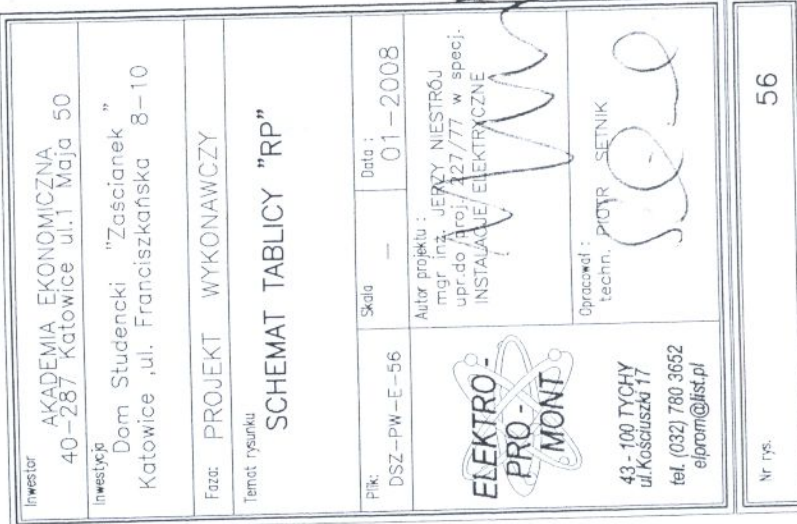 Inwestor
AKADEMIA EKONOMICZNA
40-287 Katowice ul.1 Maja 50
Inwestycja
Dom Studencki "Zaścianek"
Katowice ,ul. Franciszkańska 8-10
Faza: PROJEKT WYKONAWCZY
Temat rysunku
SCHEMAT TABLICY "RP"
Plik:
DSZ-PW-E-56
Skala
—
Data :
01-2008
ELEKTRO-
PRO-
MONT
43-100 TYCHY
ul.Kościuszki 17
tel. (032) 780 3652
elprom@list.pl
Autor projektu :
mgr inż. JERZY NIESTRÓJ
upr.do proj. 227/77 w specj.
INSTALACJE ELEKTRYCZNE
Opracował :
techn. PIOTR SETNIK
Nr rys.
56